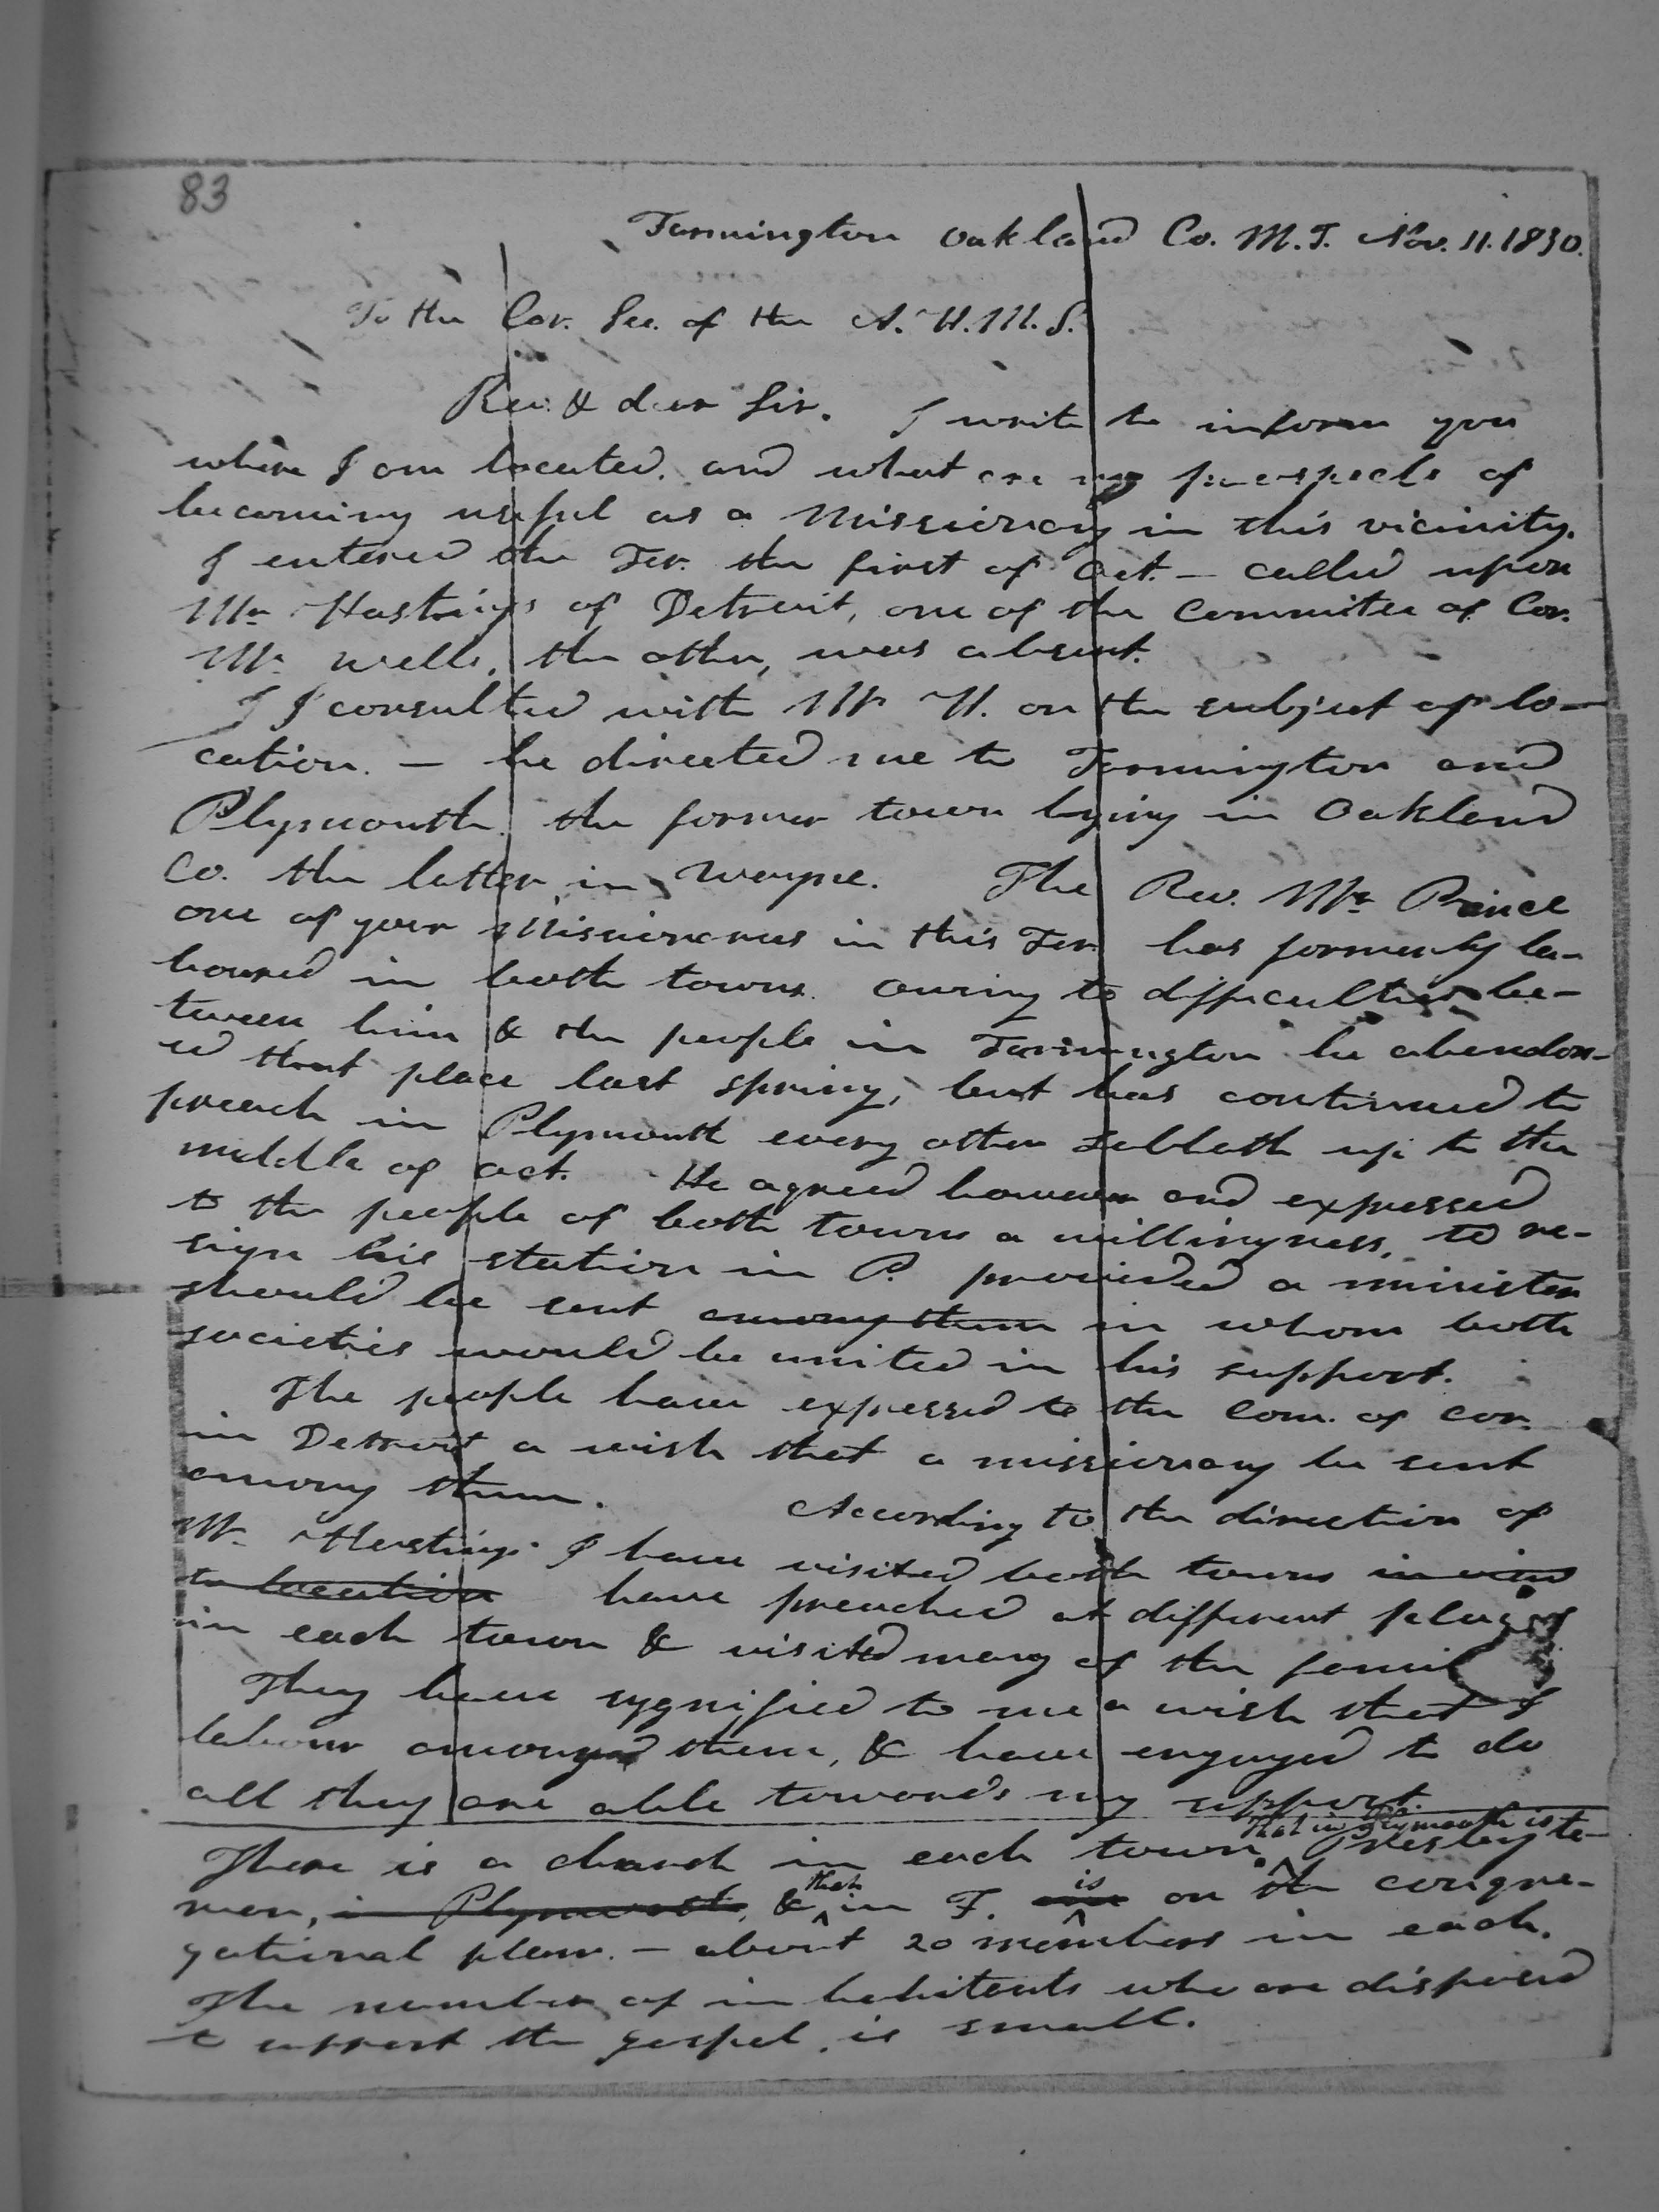 83
Farmington Oakland Co. M.T. Nov. 11. 1830.
To the Cor. Sec. of the A.H.M.S.
Rev. & dear Sir. I write to inform you
where I am located, and what are my prospects of
becoming useful as a Missionary in this vicinity.
I entered the Ter. the first of Oct. — called upon
Mr Hastings of Detroit, one of the Committee of Cor.
Mr. Wells, the other, was absent.
I consulted with Mr H. on the subject of lo-
cation. — he directed me to Farmington and
Plymouth, the former town lying in Oakland
Co. the latter in Wayne. The Rev. Mr. Prince
one of your Missionaries in this Ter. has formerly la-
boured in both towns. Owing to difficulties be-
tween him & the people in Farmington he abandon-
ed that place last spring, but has continued to
preach in Plymouth every other Sabbath up to the
middle of Oct. He agreed however and expressed
to the people of both towns a willingness, to re-
sign his station in P. provided a minister
should be sent among them in whom both
societies would be united in his support.
The people have expressed to the Com. of Cor.
in Detroit a wish that a missionary be sent
among them. According to the direction of
Mr. Hastings I have visited both towns in view
to location have preached at different places
in each town & visited many of the famil
They have sygnified to me a wish that I
labour among them, & have engaged to do
all they are able towards my support.
that in Plymouth is
There is a church in each town. Presbyte-
that is
rian, in Plymouth, & in F. on the congre-
gational plan. — about 20 members in each.
The number of inhabitents who are disposed
to support the gospel, is small.